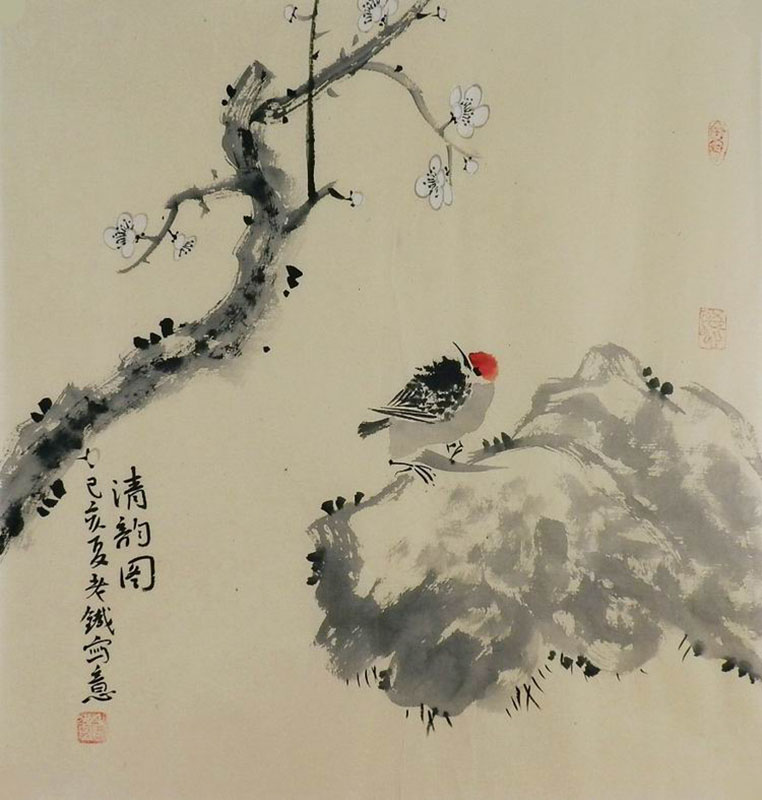 清韵图
己亥夏老鐵写意